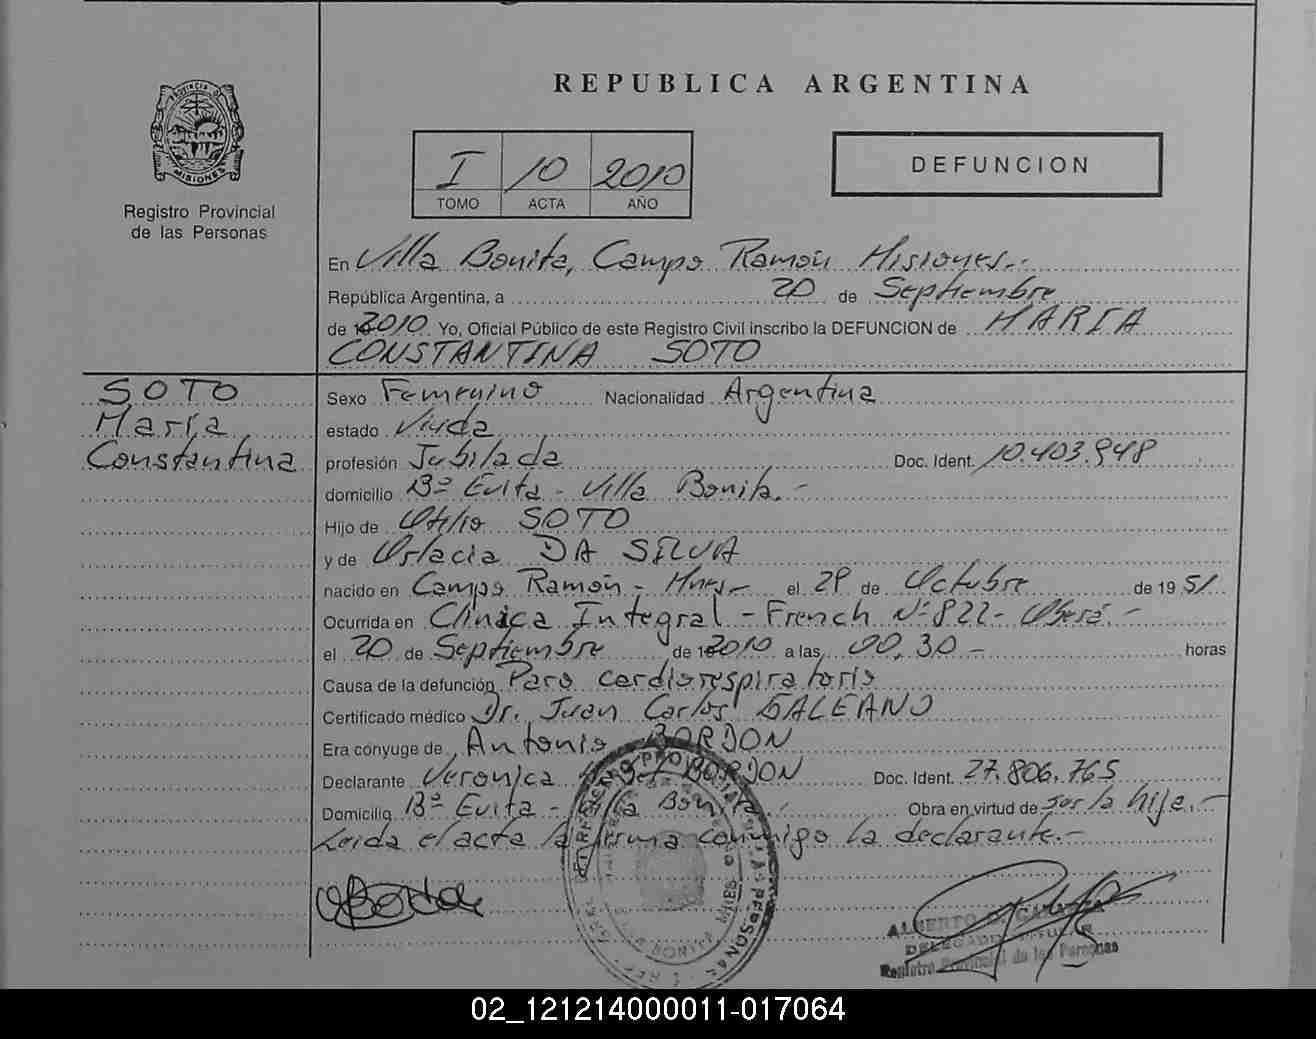 REPUBLICA ARGENTINA
PROVINCIA DE
MISIONES
Registro Provincial
de las Personas
I 10 2010
TOMO ACTA AÑO
DEFUNCION
En Villa Bonita, Campo Ramón Misiones.-
República Argentina, a 20 de Septiembre
de 2010 Yo, Oficial Público de este Registro Civil inscribo la DEFUNCION de MARIA
CONSTANTINA SOTO
SOTO
María
Constantina
Sexo Femenino Nacionalidad Argentina
estado Viuda
profesión Jubilada Doc. Ident. 10.403.948
domicilio Bº Evita - Villa Bonita.-
Hijo de Otilio SOTO
y de DA SILVA
nacido en Campo Ramón - Mnes.- el 29 de Octubre de 1951
Ocurrida en Clínica Integral - French Nº 822 - Oberá.-
el 20 de Septiembre de 2010 a las 00,30 - horas
Causa de la defunción Paro cardiorespiratorio
Certificado médico Dr. Juan Carlos GALEANO
Era cónyuge de Antonio BORDON
Declarante Veronica BORDON Doc. Ident. 27.806.765
Domicilio Bº Evita - Villa Bonita.- Obra en virtud de ser la hija.-
Leida el acta la firma conmigo la declarante.-
ALBERTO
DELEGADO TITULAR
Registro Provincial de las Personas
02_121214000011-017064